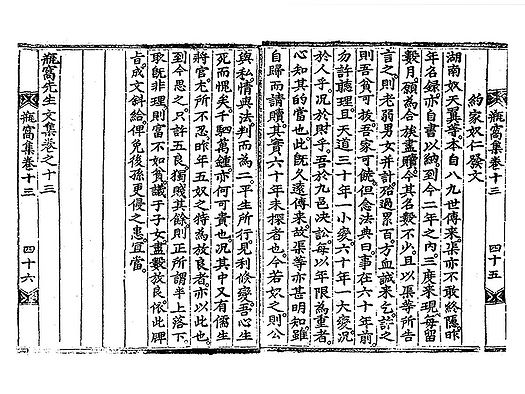 甁窩集卷十三
四十五
約家奴仁發文
湖南奴天翼等本自八九世傳來渠亦不敢終隱昨
年名錄亦自書以納到今二年之內三度來現每留
數月願為合族盡贖今其名數不少且以渠等所告
言之則老弱男女并計殆過累百方血誠來乞許之
則吾貧可敖吾家可饒但念法典曰事在六十年前
勿許聽理且天道三十年一小變六十年一大變況
於人乎況於財乎吾於九邑決訟每以年限為重者
心知其的當也此旣久遠傳來故渠等亦甚明知雖
自歸而請贖其實六十年未探者也今若奴之則公
與私情與法判而為二平生所行見利修變吾心生
死而愧矣千駟萬鍾亦何可貴也況其中又有儒生
將官尤所不忍昨年五奴之特為放良者亦以此也
到今思之只許五良獨賤其餘則正所謂半上落下
取旣非理則富不如貧議于子女盡數放良依此牌
旨成文斜給俾免後孫更侵之患宜當
甁窩先生文集卷之十三
甁窩集卷十三
四十六